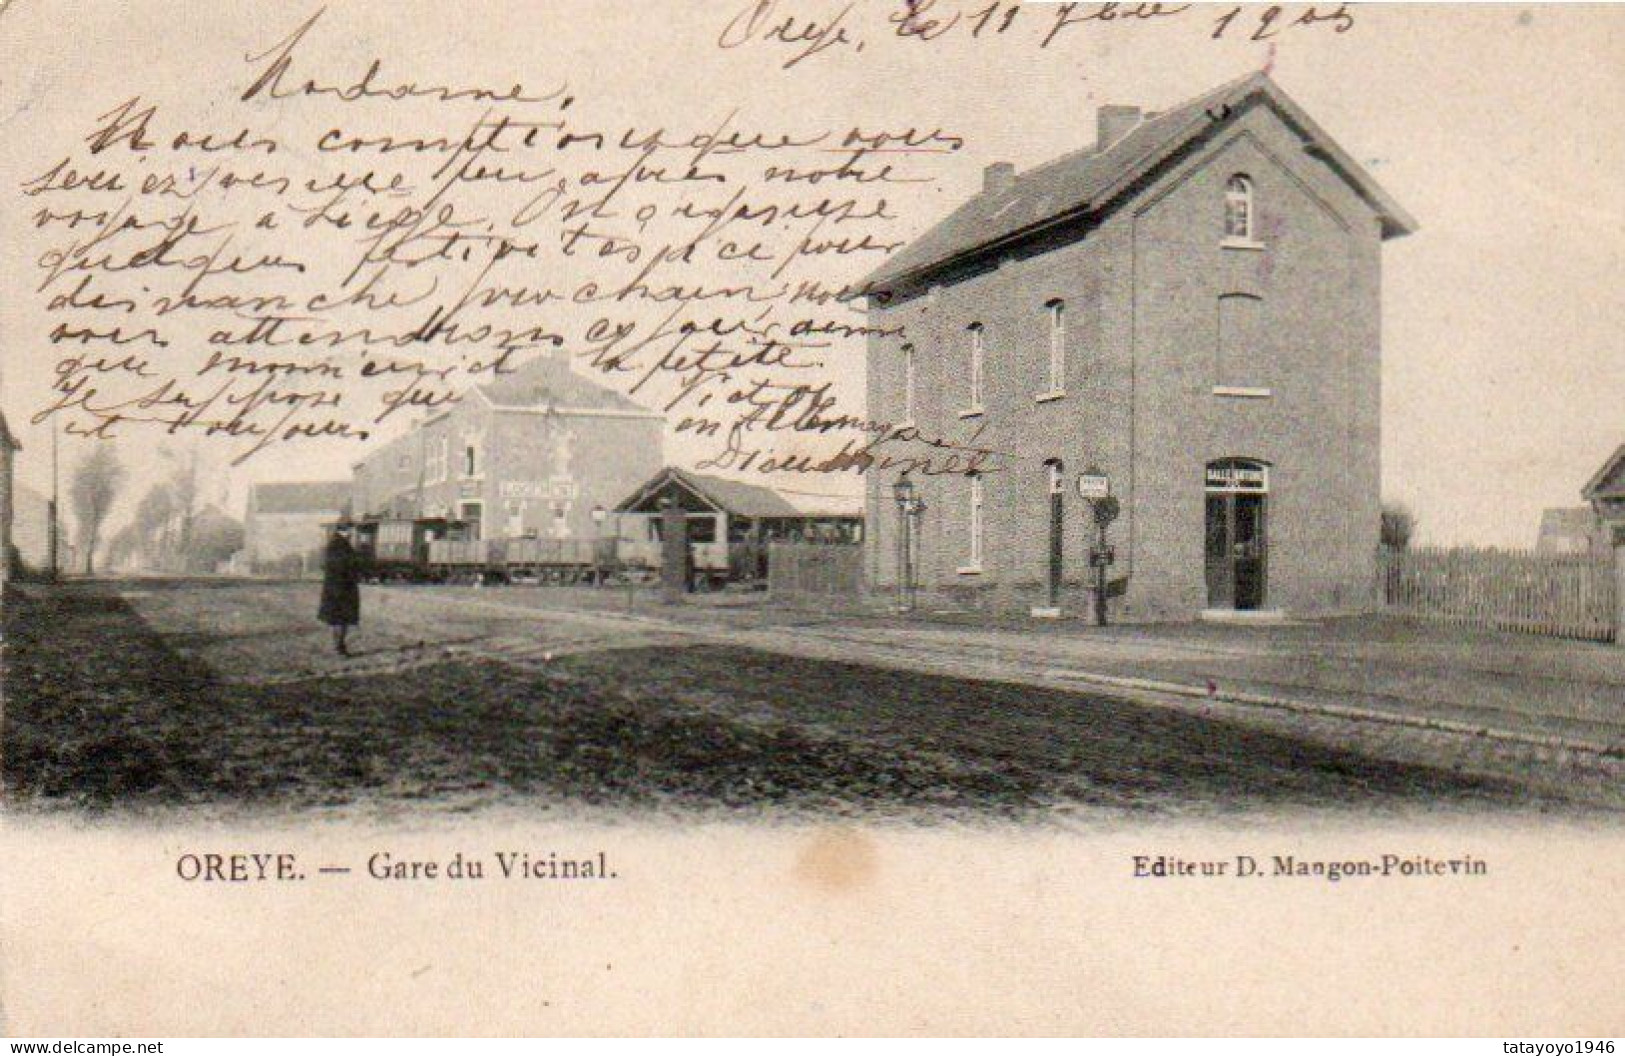 Oreye, le 11 7bre 1905
Madame,
Nous comptions que vous
seriez venue peu après notre
voyage à Liège. On organise
quelques festivités ici pour
dimanche prochain, nous
vous attendrons ce jour, ainsi
que Monsieur et la petite.
Je suppose que Victor
est toujours en Allemagne!
Dieudonné
SALLE D'ATTENTE
OREYE. — Gare du Vicinal.
Editeur D. Mangon-Poitevin
tatayoyo1946
www.delcampe.net